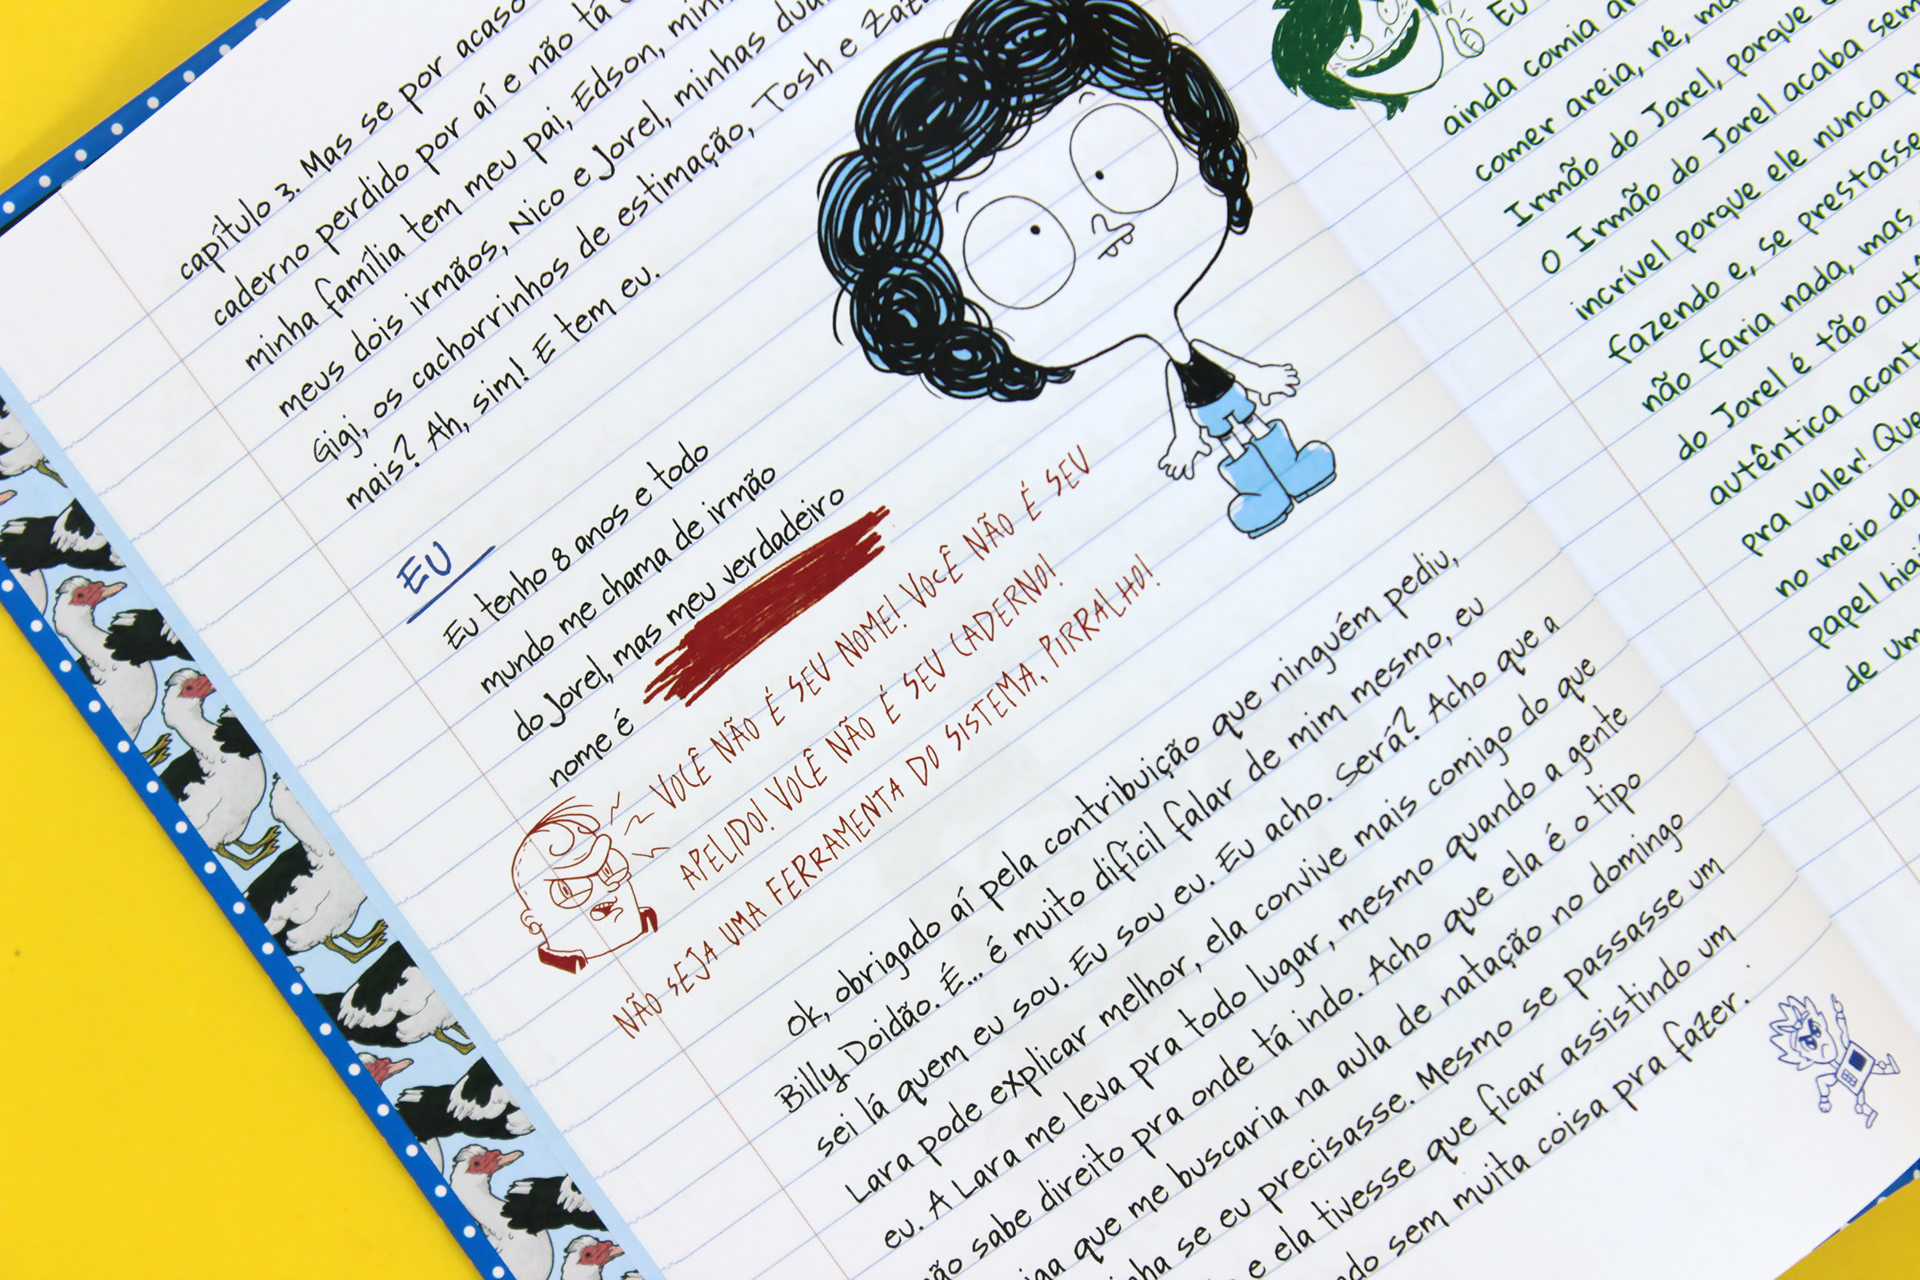 capítulo 3. Mas se por acaso
caderno perdido por aí e não tá
minha família tem meu pai, Edson,
meus dois irmãos, Nico e Jorel, minhas
Gigi, os cachorrinhos de estimação, Tosh e
mais? Ah, sim! E tem eu.
EU
Eu tenho 8 anos e todo
mundo me chama de irmão
do Jorel, mas meu verdadeiro
nome é
VOCÊ NÃO É SEU NOME! VOCÊ NÃO É SEU
APELIDO! VOCÊ NÃO É SEU CADERNO!
NÃO SEJA UMA FERRAMENTA DO SISTEMA, PIRRALHO!
Ok, obrigado aí pela contribuição que ninguém pediu,
Billy Doidão. É... é muito difícil falar de mim mesmo, eu
sei lá quem eu sou. Eu sou eu. Eu acho. Será? Acho que a
Lara pode explicar melhor, ela convive mais comigo do que
eu. A Lara me leva pra todo lugar, mesmo quando a gente
não sabe direito pra onde tá indo. Acho que ela é o tipo
que me buscaria na aula de natação no domingo
se eu precisasse. Mesmo se passasse um
e ela tivesse que ficar assistindo um
sem muita coisa pra fazer.
Eu
ainda comia
comer areia, né,
Irmão do Jorel, porque
O Irmão do Jorel acaba
incrível porque ele nunca
fazendo e, se prestasse
não faria nada, mas
do Jorel é tão
autêntica
pra valer! Que
no meio da
papel
de